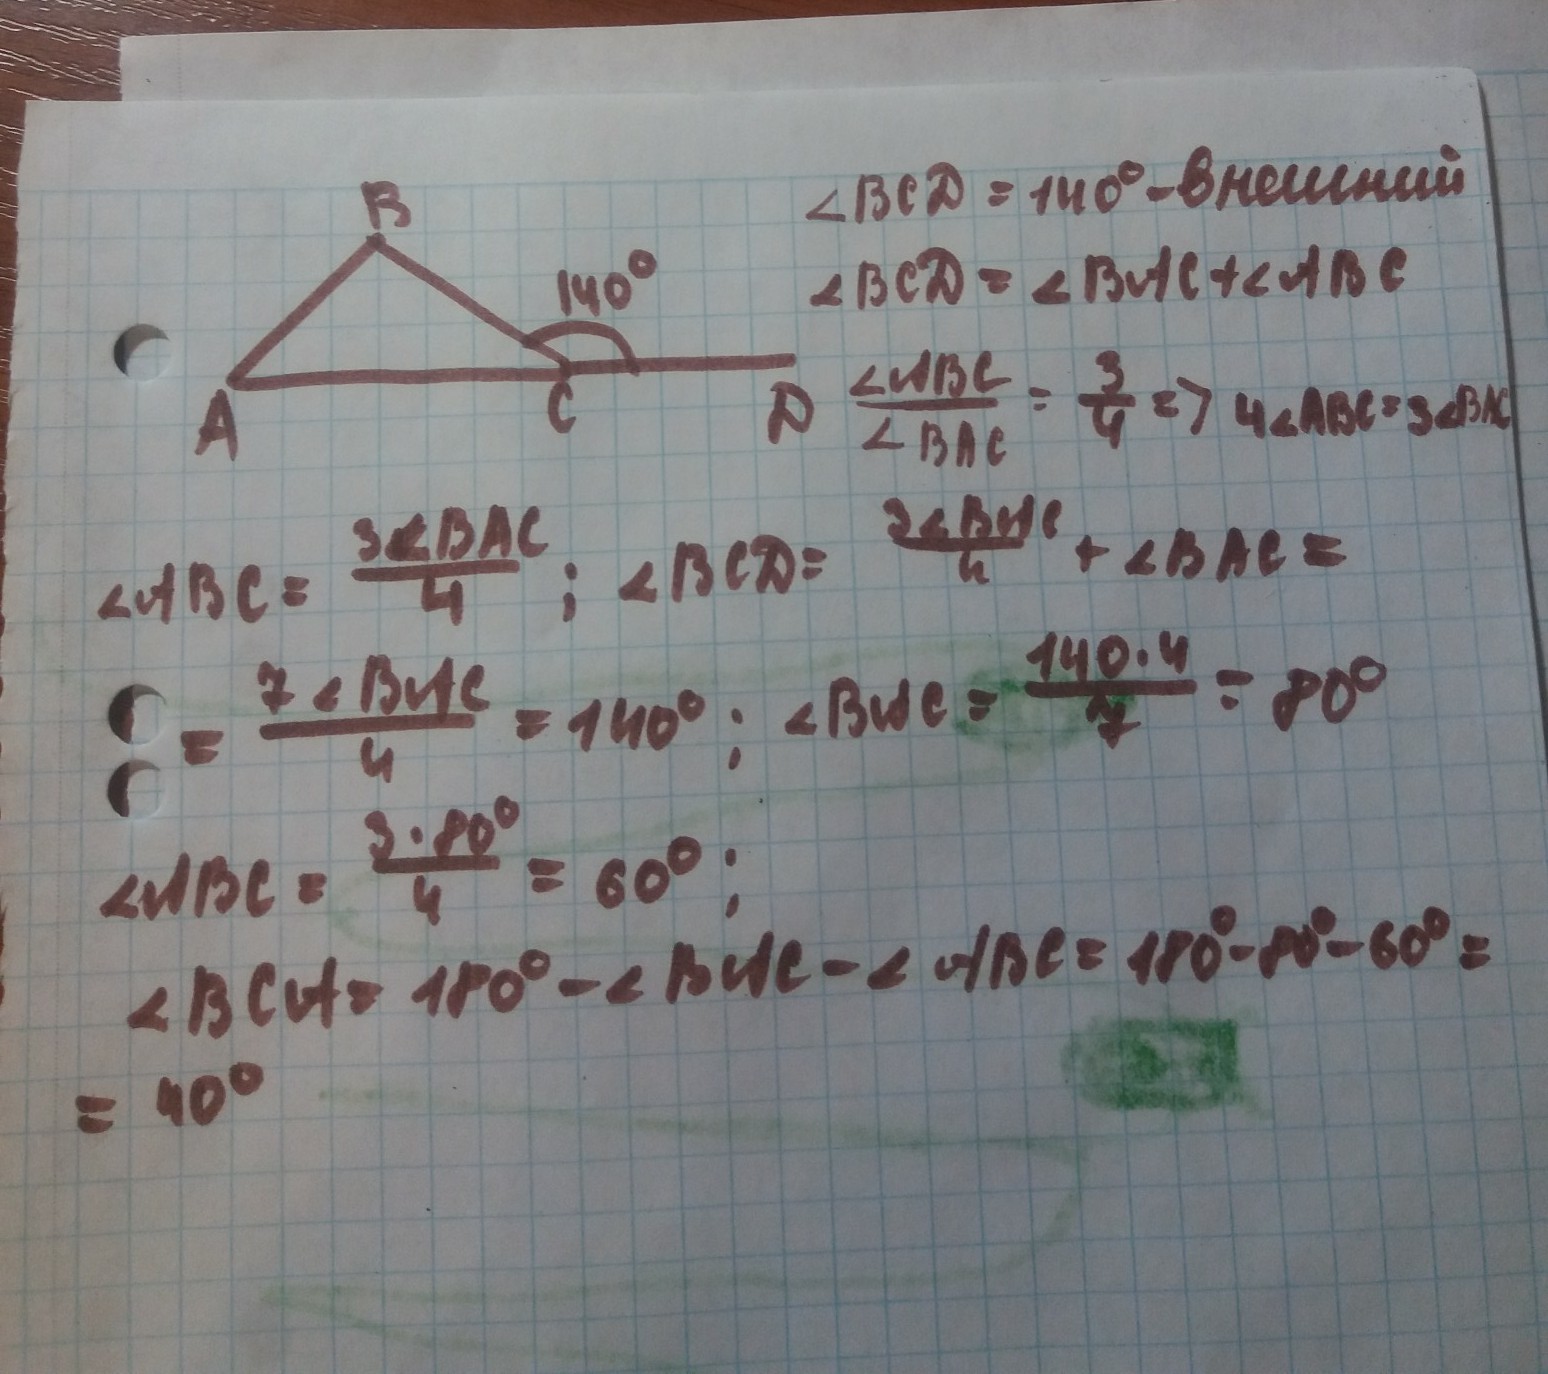 B
140°
A
C
D
∠BCD = 140° - внешний
∠BCD = ∠BAC + ∠ABC
∠ABC/∠BAC = 3/4 => 4∠ABC = 3∠BAC
∠ABC = 3∠BAC/4 ; ∠BCD = 3∠BAC/4 + ∠BAC =
= 7∠BAC/4 = 140° ; ∠BAC = 140·4/7 = 80°
∠ABC = 3·80°/4 = 60° ;
∠BCA = 180° - ∠BAC - ∠ABC = 180° - 80° - 60° =
= 40°